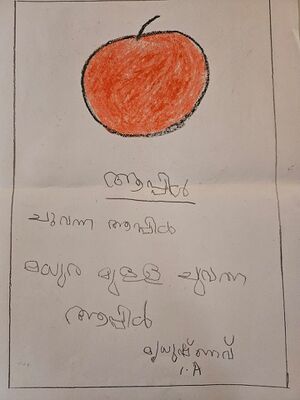 ആപ്പിൾ
ചുവന്ന ആപ്പിൾ
മധുര മുള്ള ചുവന്ന
ആപ്പിൾ
1.A